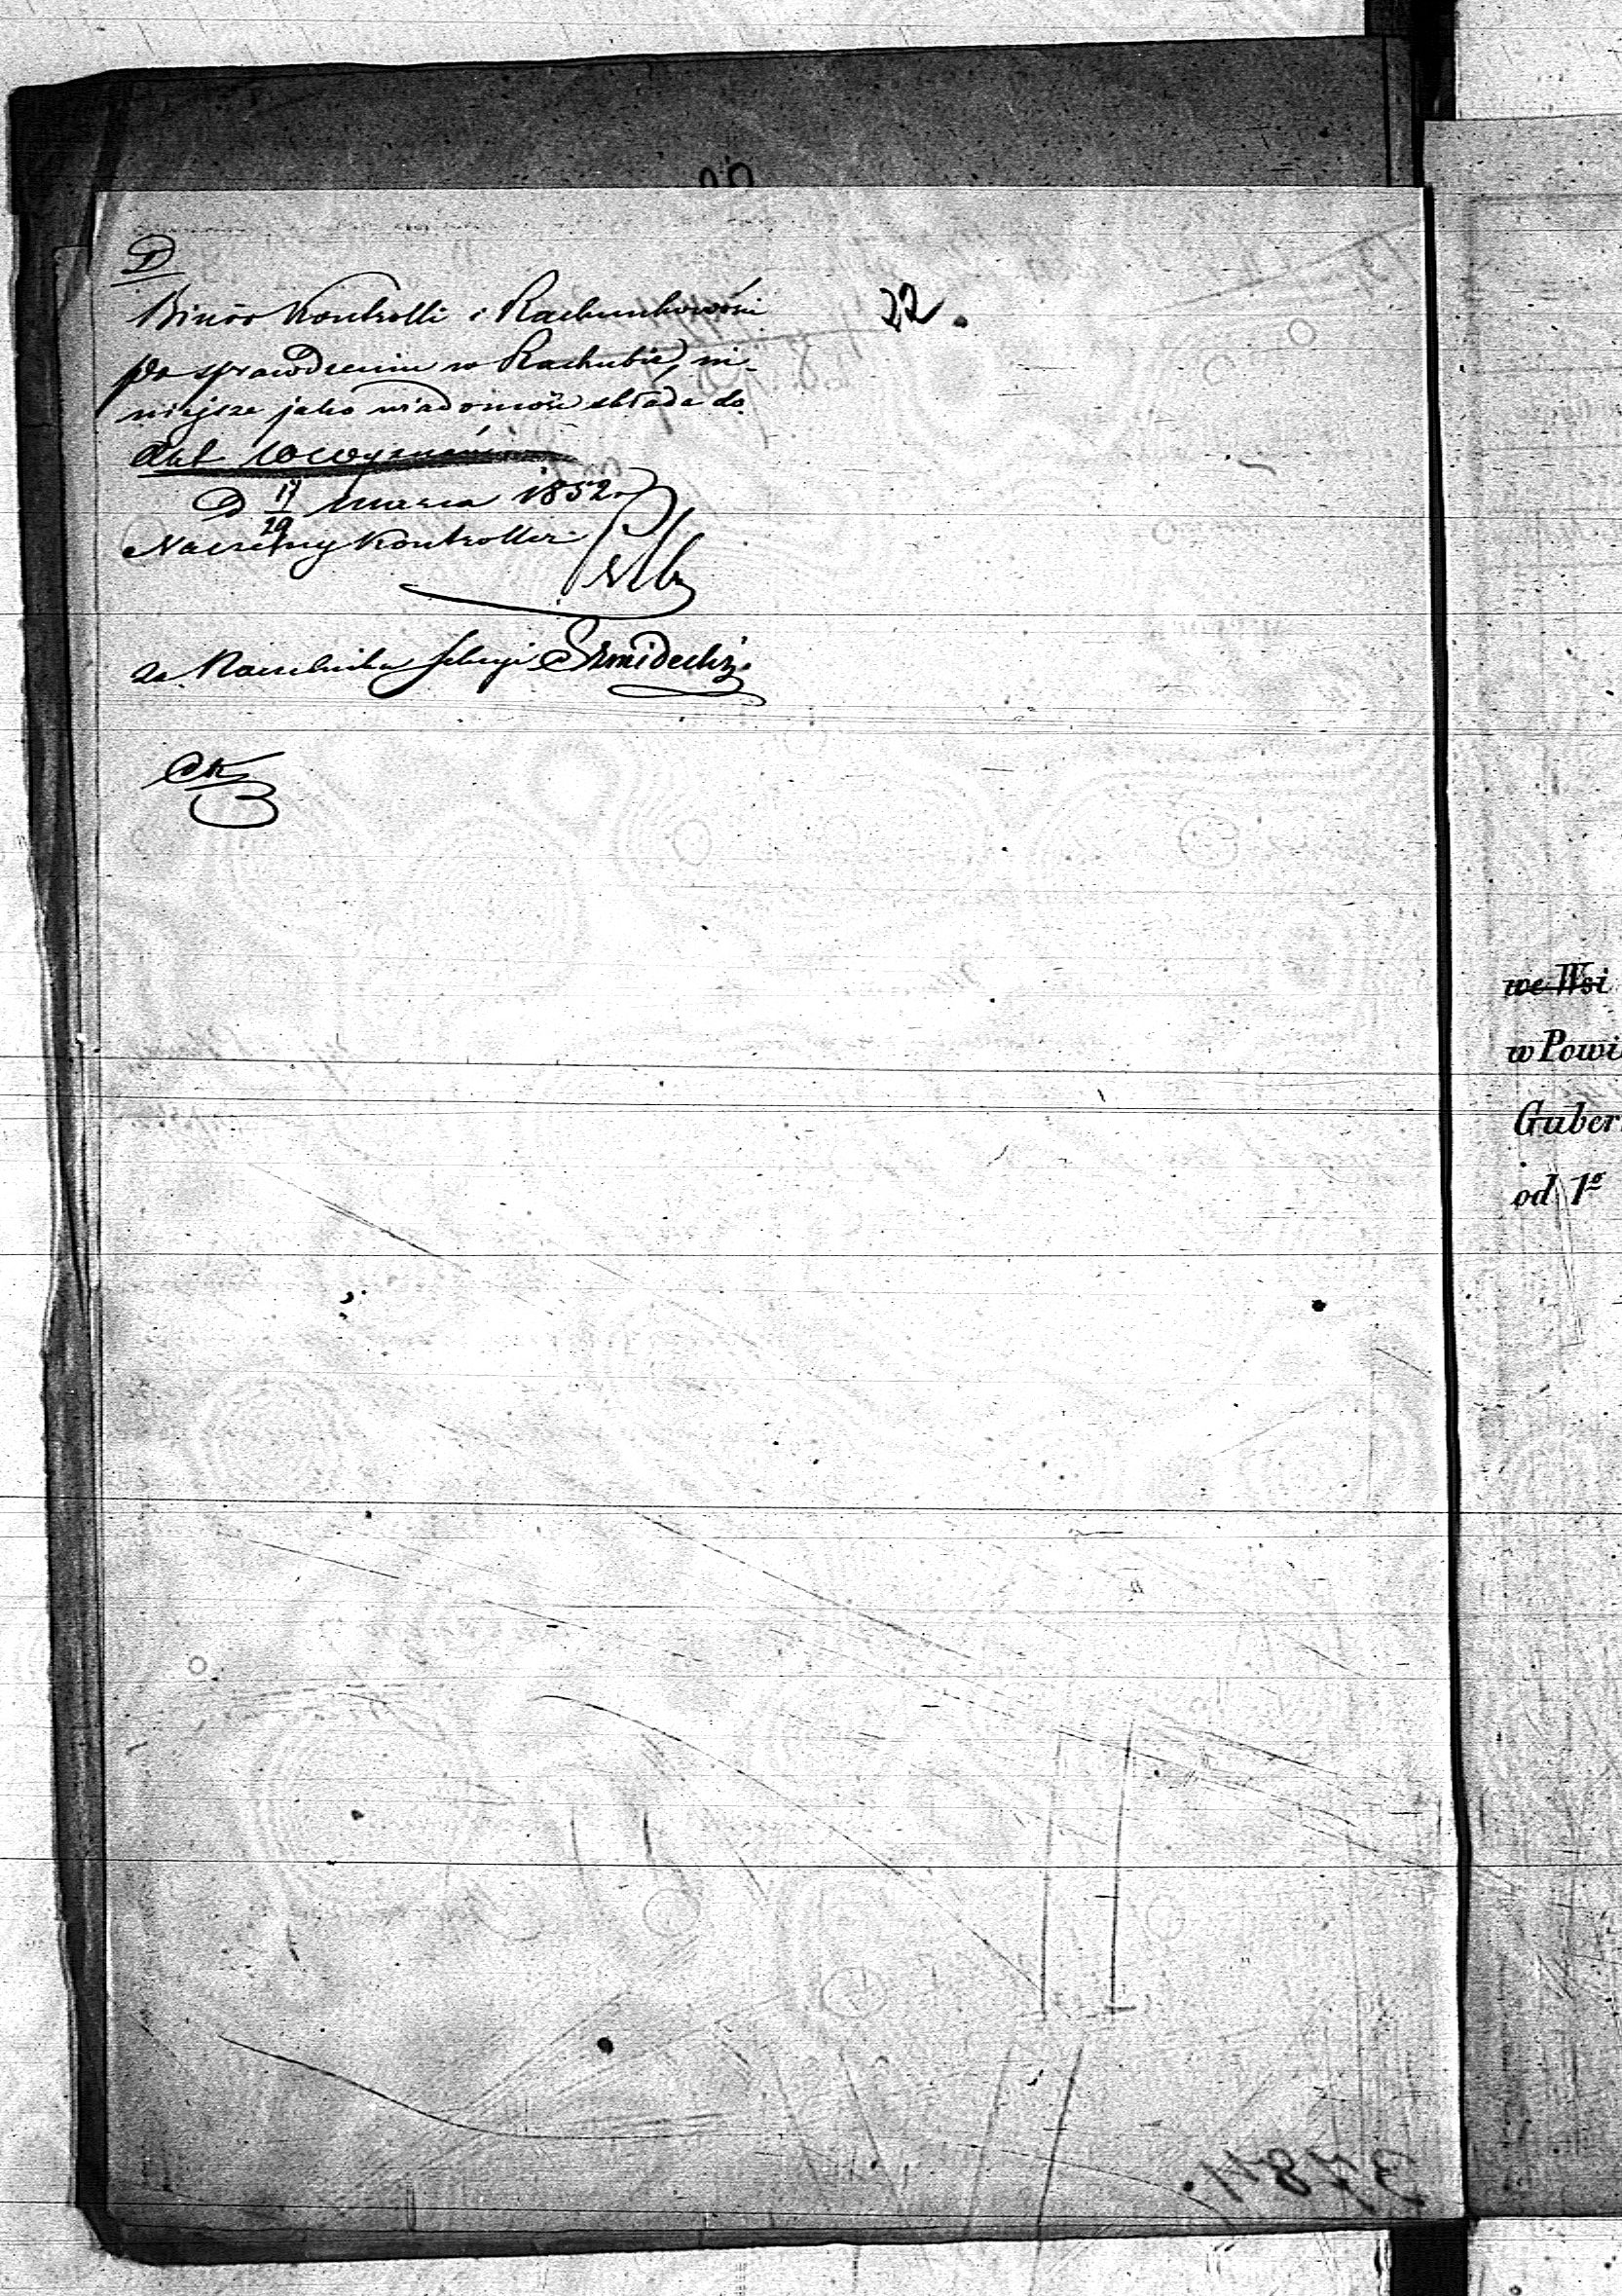 D
22.
Biuro Kontrolli i Rachunkowości
po sprawdzeniu w Rachubie, ni-
niejsze jako wiadomość składa do
Akt
D 17/29 Marca 1852 r
Naczelny Kontroller
za Naczelnika Sekcyi Szmidecki
we Wsi
w Powi
Guber
od 1º